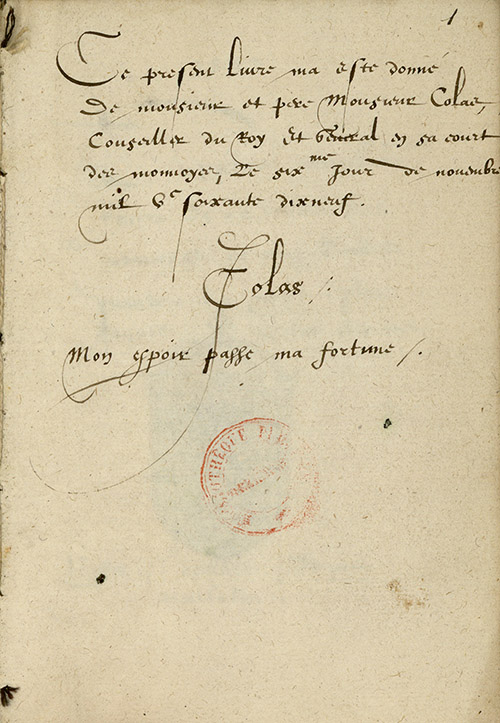 1
Ce present livre ma este donné
De monsieur et pere Monsieur Colas,
Conseiller du Roy et general en sa court
des monnoyes, Le six me Jour de novembre
mil Vc soixante dixneuf.
Colas
Mon espoir passe ma fortune